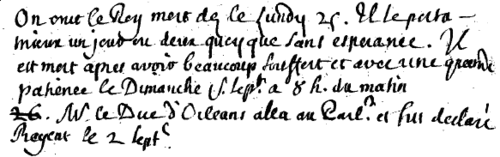 On crut le Roy mort dez le Lundy 25. Il se porta
mieux un jour ou deux quoy que sans esperance. Il
est mort apres avoir beaucoup souffert et avec une grande
patience le Dimanche 1 Sept. a 8 h. du matin
26. Mr le Duc d'Orleans alla au Parl. et fut declaré
Regent le 2 Sept.